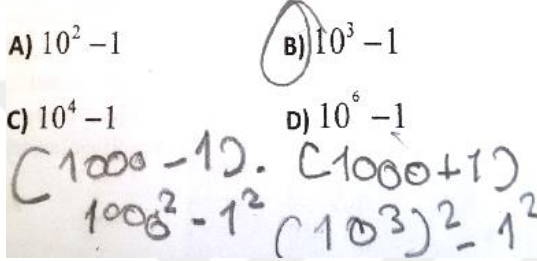 A) 10² – 1 B) 10³ – 1
C) 10⁴ – 1 D) 10⁶ – 1
(1000 – 1). (1000+1)
1000² - 1² (10³)² - 1²